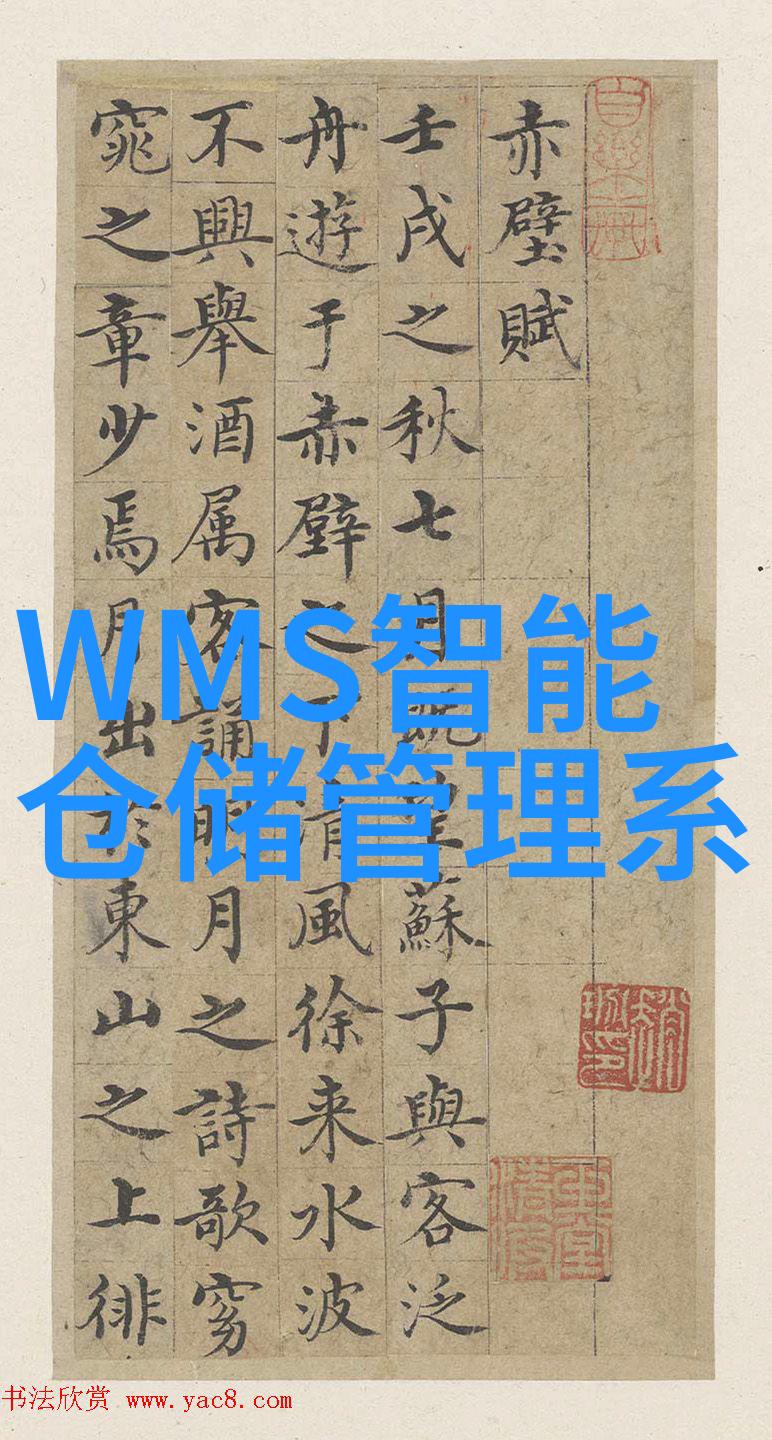 赤壁賦
壬戌之秋七月既望蘇子與客泛
舟遊于赤壁之下清風徐来水波
不興舉酒属客誦明月之詩歌窈
窕之章少焉月出於東山之上徘
WMS智能
仓储管理系
书法欣赏 www.yac8.com